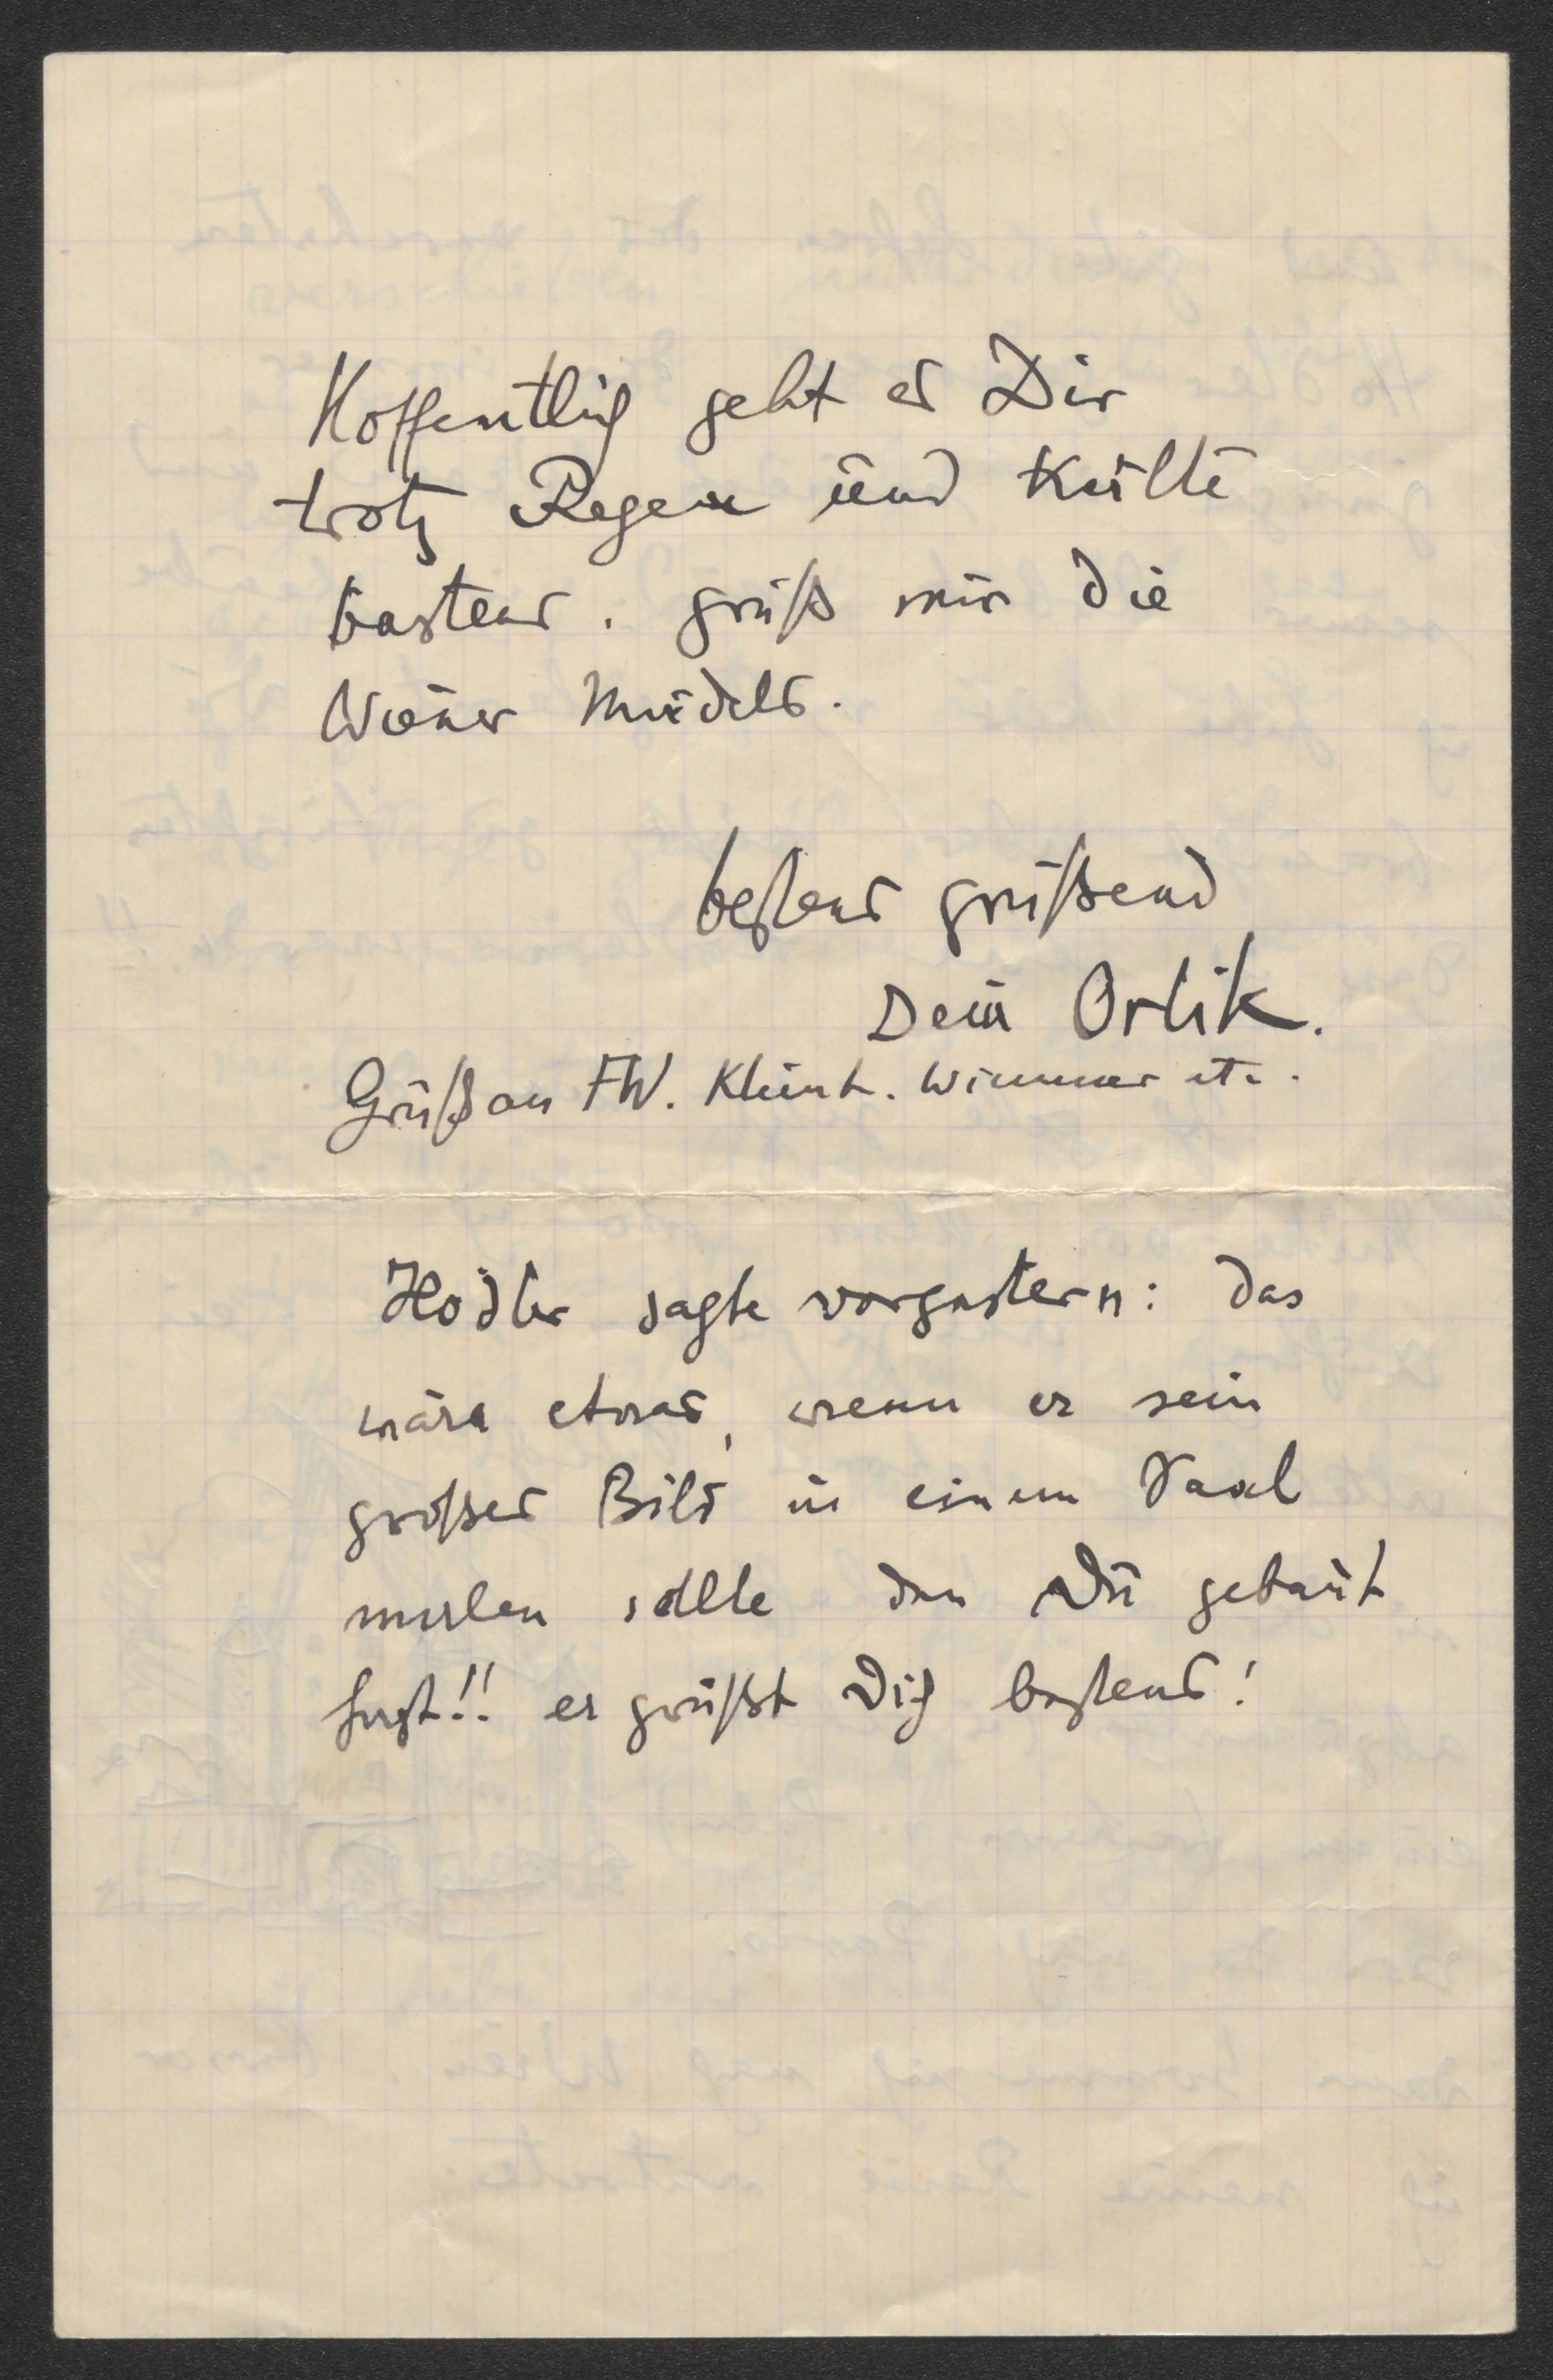 Hoffentlich geht es Dir
trotz Regen und Kälte
bestens. grüß mir die
Wiener Mädels.
bestens grüßend
Dein Orlik.
Grüß an FW. Klimt. Wimmer etc.
Hodler sagte vorgestern: das
wäre etwas, wenn er sein
großes Bild in einem Saal
malen sollte den Du gebaut
hast!! er grüßt Dich bestens!